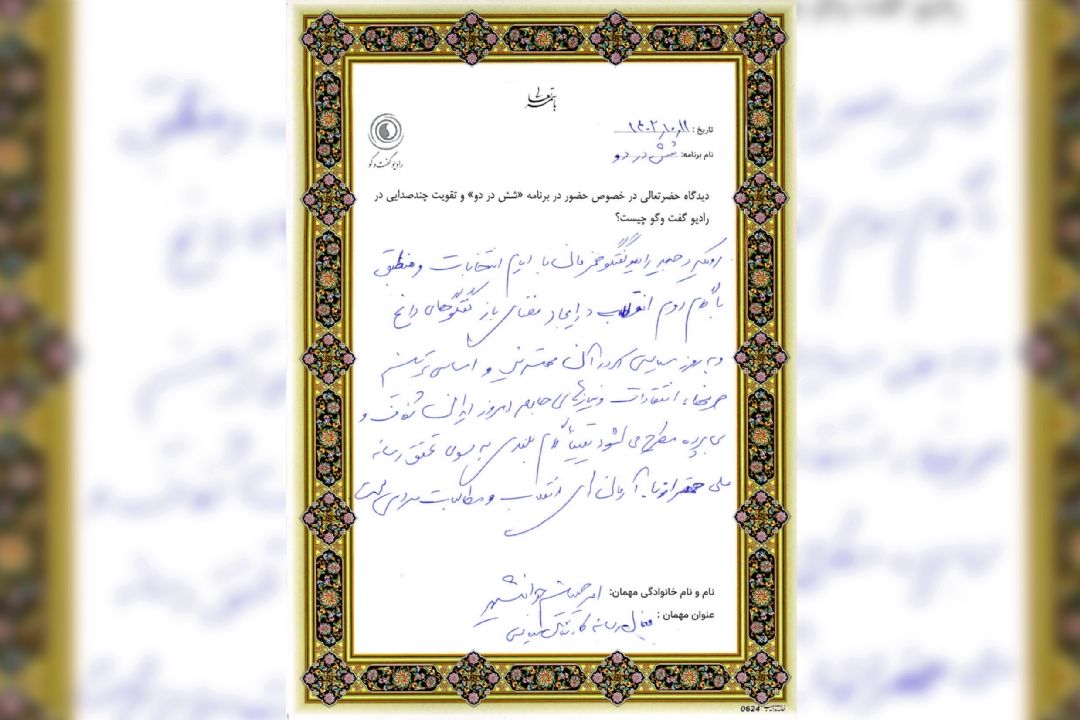 باسمه تعالی
رادیو گفت و گو
تاریخ: ۱۴۰۲/۱۰/۱۱
نام برنامه: شش در دو
دیدگاه حضرتعالی در خصوص حضور در برنامه «شش در دو» و تقویت چندصدایی در
رادیو گفت وگو چیست؟
رویکرد جدید رادیو گفتگو همزمان با ایام انتخابات و منطبق
با گام دوم انقلاب در ایجاد فضای باز گفتگوهای داغ
و به روز سیاسی که در آن مهمترین و اساسی ترین
حرفها، انتقادات و نیازهای جامعه امروز ایران شفاف و
بی پرده مطرح می شود یقیناً گام بلندی به سوی تحقق رسانه
ملی آرمان های انقلاب و مطالبات مردمی است
نام و نام خانوادگی مهمان:
عنوان مهمان: فعال رسانه کارشناس سیاسی
0624